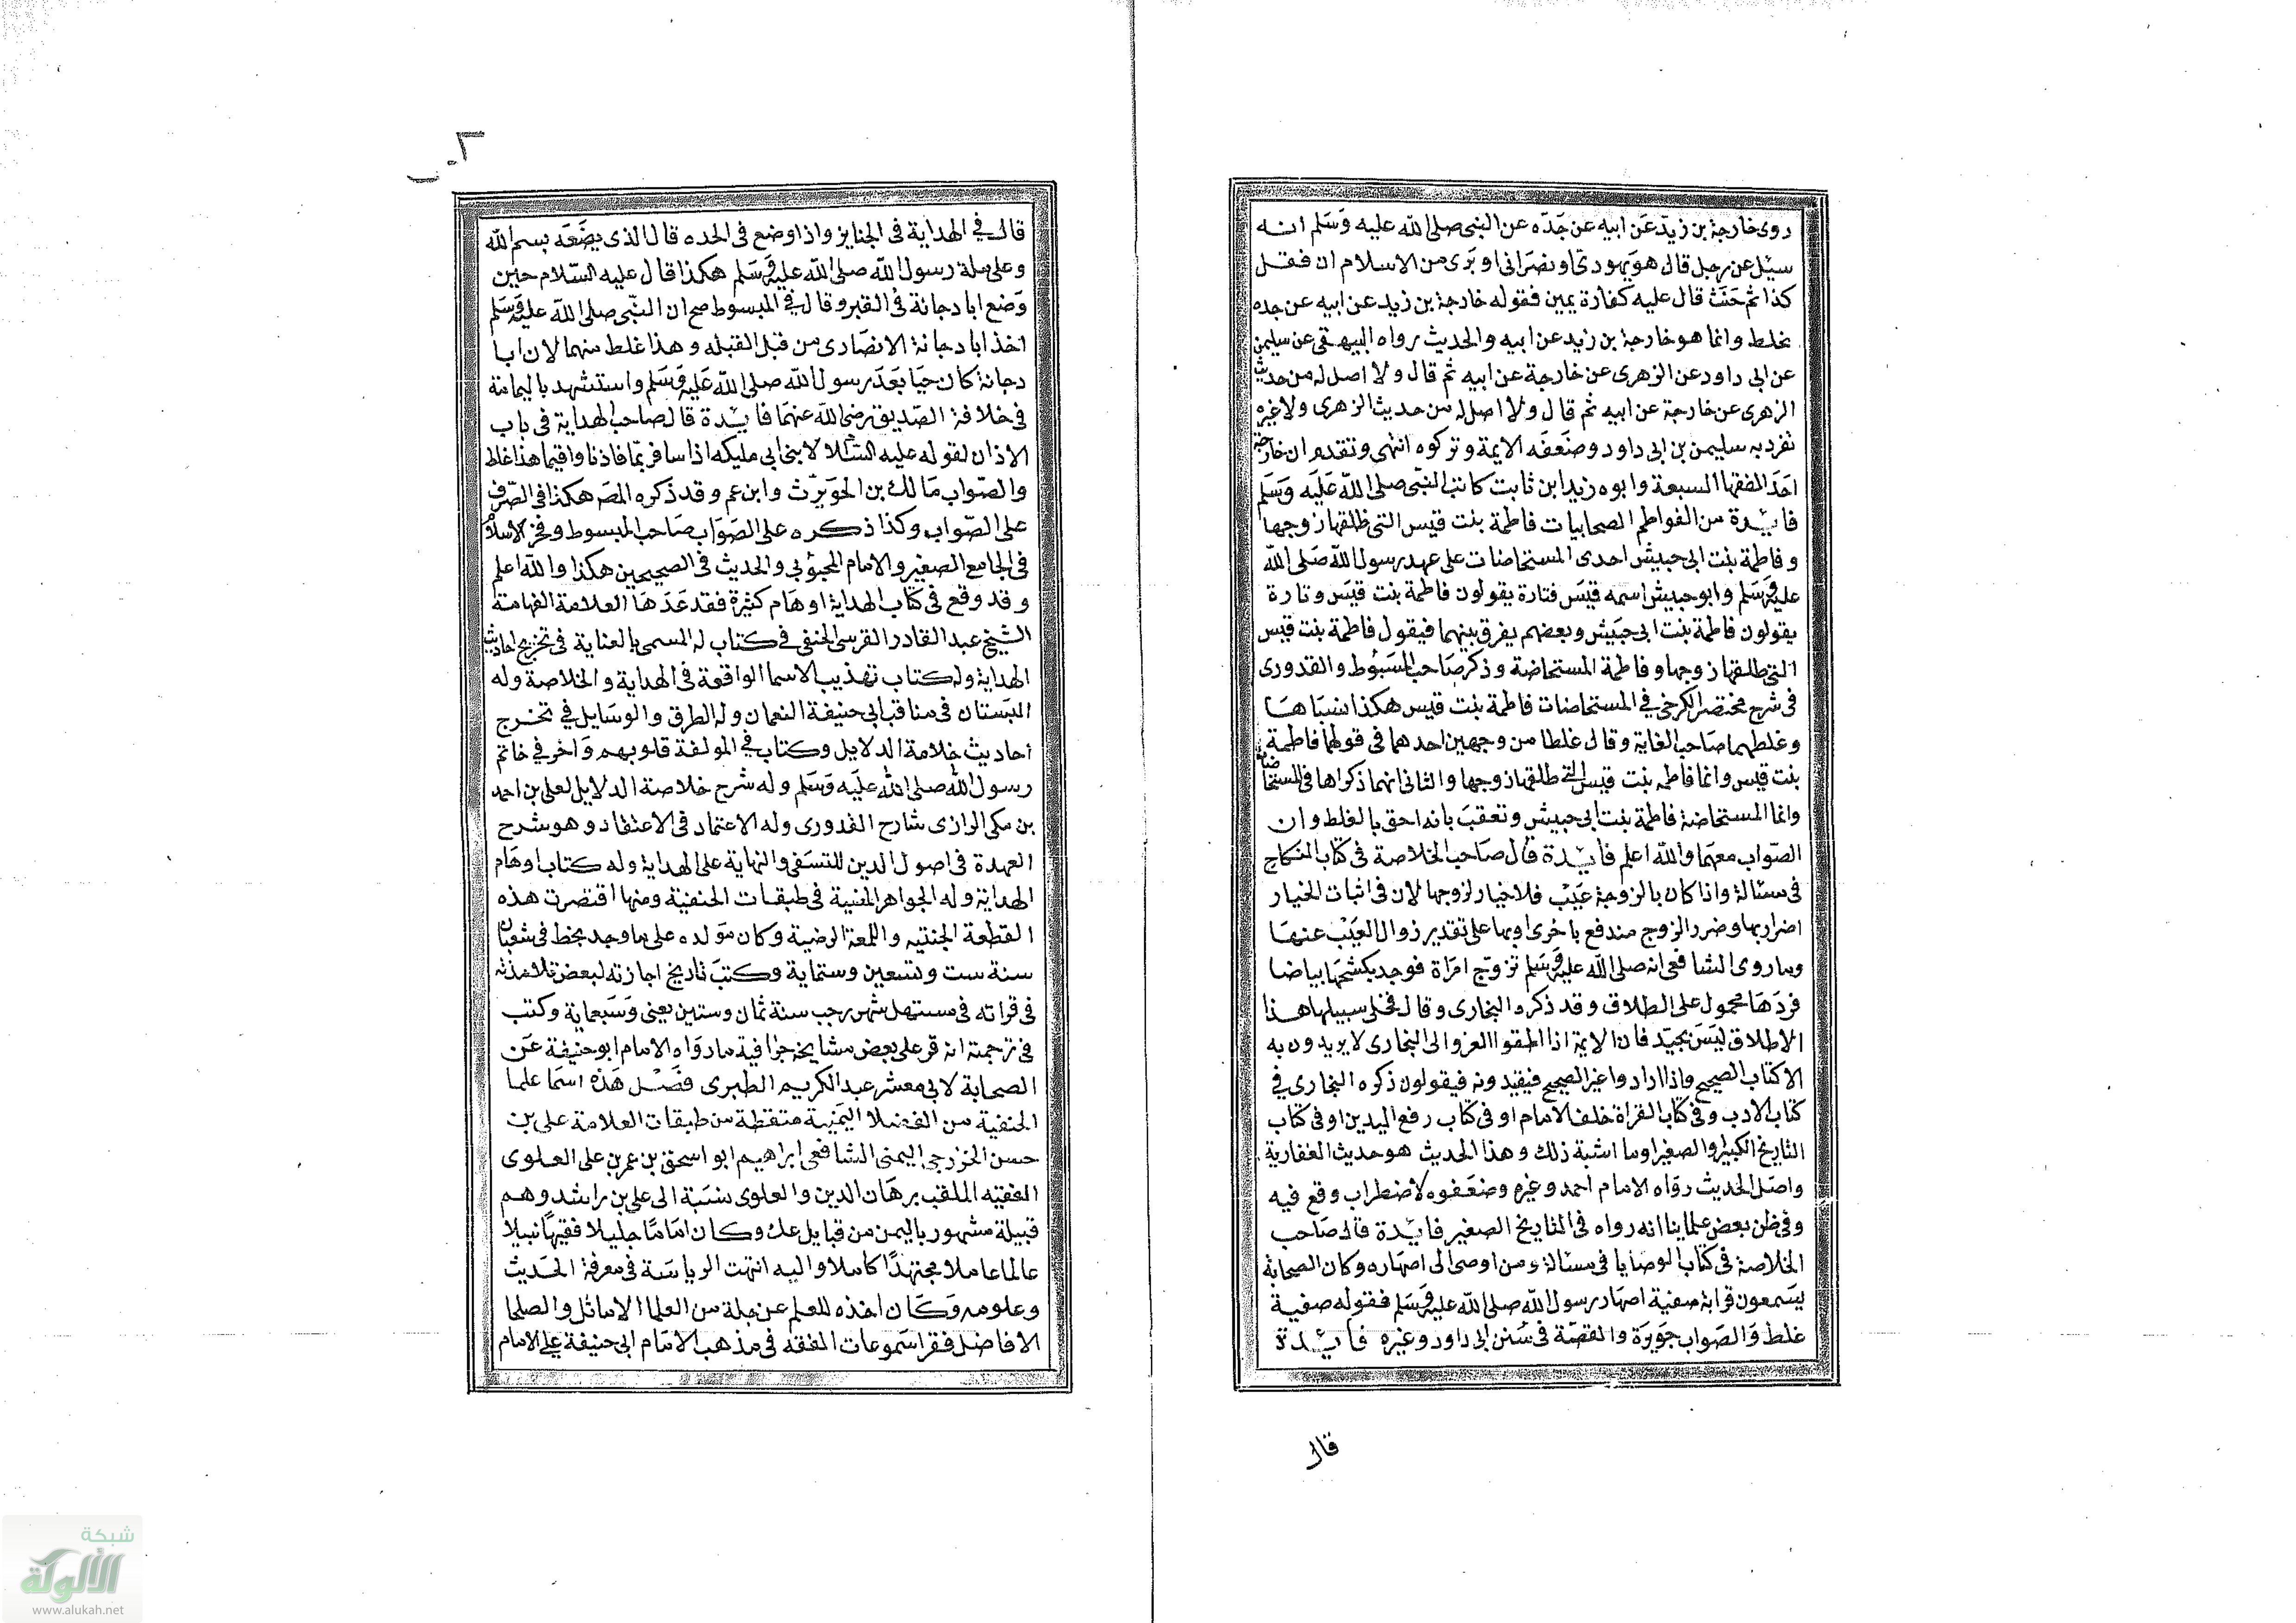 روى خارجة بن زيد عَن ابيه عن جَدّه عن النبى صلى الله عليه وَسَلم انه
سئل عن رجل قال هو يهودى او نصَرانى او بَرى من الاسلام ان فعَل
كذا ثم حَنَث قال عليه كفارة يمين فقوله خارجة بن زيد عن ابيه عن جده
غلط وانما هو خارجة بن زيد عن ابيه والحديث رواه البيهقى عن سليمن
عن ابى داود عن الزهرى عن خارجة عن ابيه ثم قال ولا اصل له من حديث
الزهرى عن خارجة عن ابيه ثم قال ولا اصل له من حديث الزهرى ولا غيره
تفرد به سليمن بن ابى داود وضعَفَه الايمة وتركوه انتهى وتقدم ان خارجة
احَد الفقها السبعة وابوه زيد ابن ثابت كاتب النبّى صلى اللهّ عَليَه وَسَلم
فائدة من الفواطم الصحابيات فاطمة بنت قيس التى طلقها زوجها
وفاطمة بنت ابى حبيش احدى المستحاضات على عهد رسول اللهّ صَلى اللهّ
عليه وَسَلم وابو حبيش اسمه قيَس فتارة يقولون فاطمة بنت قيَس وتارة
يقولون فاطمة بنت ابى حبَيش وبعضهم يفرق بينهما فيقول فاطمة بنت قيس
التى طلقها زوجها وفاطمة المستحاضة وذكر صَاحب المبسَوط والقدورى
فى شرح مختصر الكرخى في المستحاضات فاطمة بنت قيس هكذا نسَبَاهَا
وغلطهما صَاحب الغاية وقال غلطا من وجهين احدهما فى قولهما فاطمة
بنت قيس وانما فاطمه بنت قيس التى طلقها زوجها والثانى انهما ذكراها فى المستحاضات
وانما المستحاضة فاطمة بنت ابى حبيش وتعقبَ بانه احق بالغلط وان
الصّواب معهما والله اعلم فائدة قال صَاحب الخلاصة فى كتاب النكاح
فى مسئالة واذا كان بالزوجة عَيَبْ فلا خيار لزوجها لان فى اثبات الخيار
اضرار بها وضرر الزوج مندفع باخرى او بها على تقدير زوال العيَبْ عنهَا
وما روى الشافعى انه صلى اللهّ عليه وَسَلم تزوّج امرَاة فوجد بكشحهَا بياضا
فردّهَا محمول على الطلاق وقد ذكره البخارى وقال فخلى سبيلها هذا
الاطلاق ليَسَ بجيّد فان الايمة اذا اطلقوا العزو الى البخارى لا يريدون به
الا كتاب الصحيح واذا ارادوا غير الصحيح فيقيدونه فيقولون ذكره البخارى في
كتاب الادب وفى كتاب القراة خلف الامام او فى كتاب رفع اليدين او فى كتاب
التاريخ الكبير والصغير او ما اشبة ذلك وهذا الحديث هو حديث الغفارية
واصَل الحديث روَاه الامام احمد وغيره وضعَفوه لاضطراب وقع فيه
وفى ظن بعض علماينا انه رواه فى التاريخ الصغير فائدة قال صَاحب
الخلاصة فى كتاب الوصَايا فى مسئالة ومن اوصى الى اصهاره وكان الصحابة
يسَمعون قرابة صفية اصهار رسول اللهّ صلى اللهّ عليه وَسَلم فقوله صفية
غلط وَالصَواب جوَيرَة والقصّة فى سُنن ابى داود وغيره فائدة
قال
قال في الهداية فى الجنايز واذا وضع فى لحده قال الذى يضَعَه بسم اللهّ
وعلى ملة رسول اللهّ صلى اللهّ عليه وَسَلم هكذا قال عليه السّلام حين
وَضع ابا دجانة فى القبر وقال في المبسوط صح ان النبّى صلى اللهّ عليه وَسَلم
اخذ ابا دجانة الانصَارى من قبل القبله وهذا غلط منهما لان ابا
دجانة كان حيَا بعَدَ رسول اللهّ صلى اللهّ عَليَه وَسَلم واستشهد باليمامة
فى خلافة الصّديق رضى اللهّ عنهمَا فائدة قال صاحب الهداية فى باب
الاذان لقوله عليه السّلام لابنى ابى مليكه اذا سافرتمَا فاذنا واقيما هذا غلط
والصّواب مَالك بن الحوَيرّث وابن عم وقد ذكره المصَ هكذا فى الصّرف
على الصّواب وكذا ذكره على الصَوَاب صَاحب المبسوط وفخر الاسلام
فى الجامع الصغير والامام المحبوبى والحديث فى الصحيحين هكذا واللهّ اعلم
وقد وقع فى كتاب الهداية اوهَام كثيرة فقد عَدَهَا العلامة الفهامة
الشيخ عبد القادر القرسى الحنفى في كتاب له المسمى بالعناية فى تخريج احاديث
الهداية وله كتاب تهذيب الاسما الواقعة فى الهداية والخلاصة وله
البَستان فى مناقب ابى حنيفة النعمان وله الطرق والوسَايل في تخرج
احاديث خلاصة الدلايل وكتاب في المولفة قلوبهم وَاخر في خاتم
رسول اللهّ صلى اللهّ عليَه وَسَلم وله شرح خلاصة الدلايل لعلى بن احمد
بن مكى الرازى شارح القدورى وله الاعتماد فى الاعتقاد وهو شرح
العمدة فى اصول الدين للنسَفى والنهاية على الهداية وله كتاب اوهَام
الهداية وله الجواهر المضية فى طبقات الحنفيّة ومنها اقتصرت هذه
القطعة الجنتيه واللمعة الرضية وكان موَلده على ما وجد بخط فى شعبان
سنة ست وتسَعين وستماية وكتبَ تاريخ اجازته لبعض تلامذته
فى قراته فى مستهل شهر رجب سنة ثمان وستين يعنى وَسَبعماية وكتب
فى ترجمته انه قر على بعض مشايخه جزا فيه ما روَاه الامام ابو حنيفة عَن
الصحابة لابى معشر عبد الكريم الطبرى فصَْل هَذه اسمَا علما
الحنفية من الفضلا اليمَنية متقطة من طبقات العلامة على بن
حسن الخزرجى اليمنى الشافعى ابراهيم ابو اسحق بن عمر بن على العلوى
الفقيه الملقب برهَان الدين والعلوى نسَبة الى على بن راشد وهم
قبيلة مشهور باليمن من قبايل عك وكان امَامًا جليلا فقيهًا نبيلا
عالما عاملا مجتهدًا كاملا واليه انتهت الرياسَة فى معرفة الحَديث
وعلومه وَكَان اخذه للعلم عن جلة من العلما الاماثل والصلحا
الافاضل فقرا سَموعات الفقه فى مذهب الامَام ابى حنيفة على الامام
شبكة
الألوكة
www.alukah.net